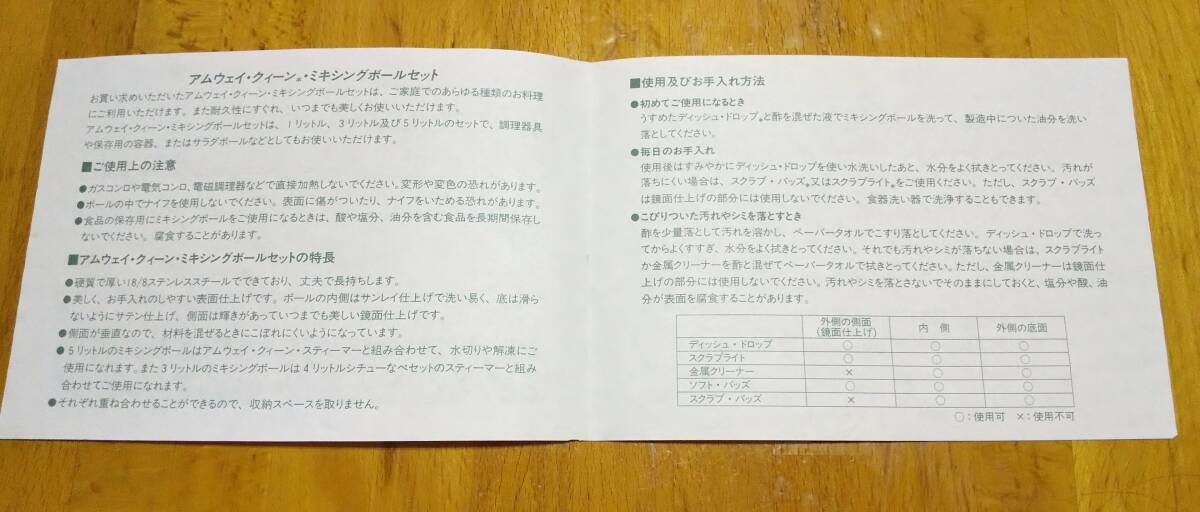 アムウェイ・クィーン®・ミキシングボールセット
お買い求めいただいたアムウェイ・クィーン・ミキシングボールセットは、ご家庭でのあらゆる種類のお料理
にご利用いただけます。また耐久性にすぐれ、いつまでも美しくお使いいただけます。
アムウェイ・クィーン・ミキシングボールセットは、1リットル、3リットル及び5リットルのセットで、調理器具
や保存用の容器、またはサラダボールなどとしてもお使いいただけます。
■ご使用上の注意
●ガスコンロや電気コンロ、電磁調理器などで直接加熱しないでください。変形や変色の恐れがあります。
●ボールの中でナイフを使用しないでください。表面に傷がついたり、ナイフをいためる恐れがあります。
●食品の保存用にミキシングボールをご使用になるときは、酸や塩分、油分を含む食品を長期間保存し
ないでください。腐食することがあります。
■アムウェイ・クィーン・ミキシングボールセットの特長
●硬質で厚い18/8ステンレススチールでできており、丈夫で長持ちします。
●美しく、お手入れのしやすい表面仕上げです。ボールの内側はサンレイ仕上げで洗い易く、底は滑ら
ないようにサテン仕上げ、側面は輝きがあっていつまでも美しい鏡面仕上げです。
●側面が垂直なので、材料を混ぜるときにこぼれにくいようになっています。
●5リットルのミキシングボールはアムウェイ・クィーン・スティーマーと組み合わせて、水切りや解凍にご
使用になれます。また3リットルのミキシングボールは4リットルシチューなべセットのスティーマーと組み
合わせてご使用になれます。
●それぞれ重ね合わせることができるので、収納スペースを取りません。
■使用及びお手入れ方法
●初めてご使用になるとき
うすめたディッシュ・ドロップ®と酢を混ぜた液でミキシングボールを洗って、製造中についた油分を洗い
落としてください。
●毎日のお手入れ
使用後はすみやかにディッシュ・ドロップを使い水洗いしたあと、水分をよく拭きとってください。汚れが
落ちにくい場合は、スクラブ・バッズ®又はスクラブライト®をご使用ください。ただし、スクラブ・バッズ
は鏡面仕上げの部分には使用しないでください。食器洗い器で洗浄することもできます。
●こびりついた汚れやシミを落とすとき
酢を少量落として汚れを溶かし、ペーパータオルでこすり落としてください。ディッシュ・ドロップで洗っ
てからよくすすぎ、水分をよく拭きとってください。それでも汚れやシミが落ちない場合は、スクラブライト
か金属クリーナーを酢と混ぜてペーパータオルで拭きとってください。ただし、金属クリーナーは鏡面仕
上げの部分には使用しないでください。汚れやシミを落とさないでそのままにしておくと、塩分や酸、油
分が表面を腐食することがあります。
外側の側面(鏡面仕上げ) 内側 外側の底面
ディッシュ・ドロップ ○ ○ ○
スクラブライト ○ ○ ○
金属クリーナー × ○ ○
ソフト・バッズ ○ ○ ○
スクラブ・バッズ × ○ ○
○:使用可 ×:使用不可